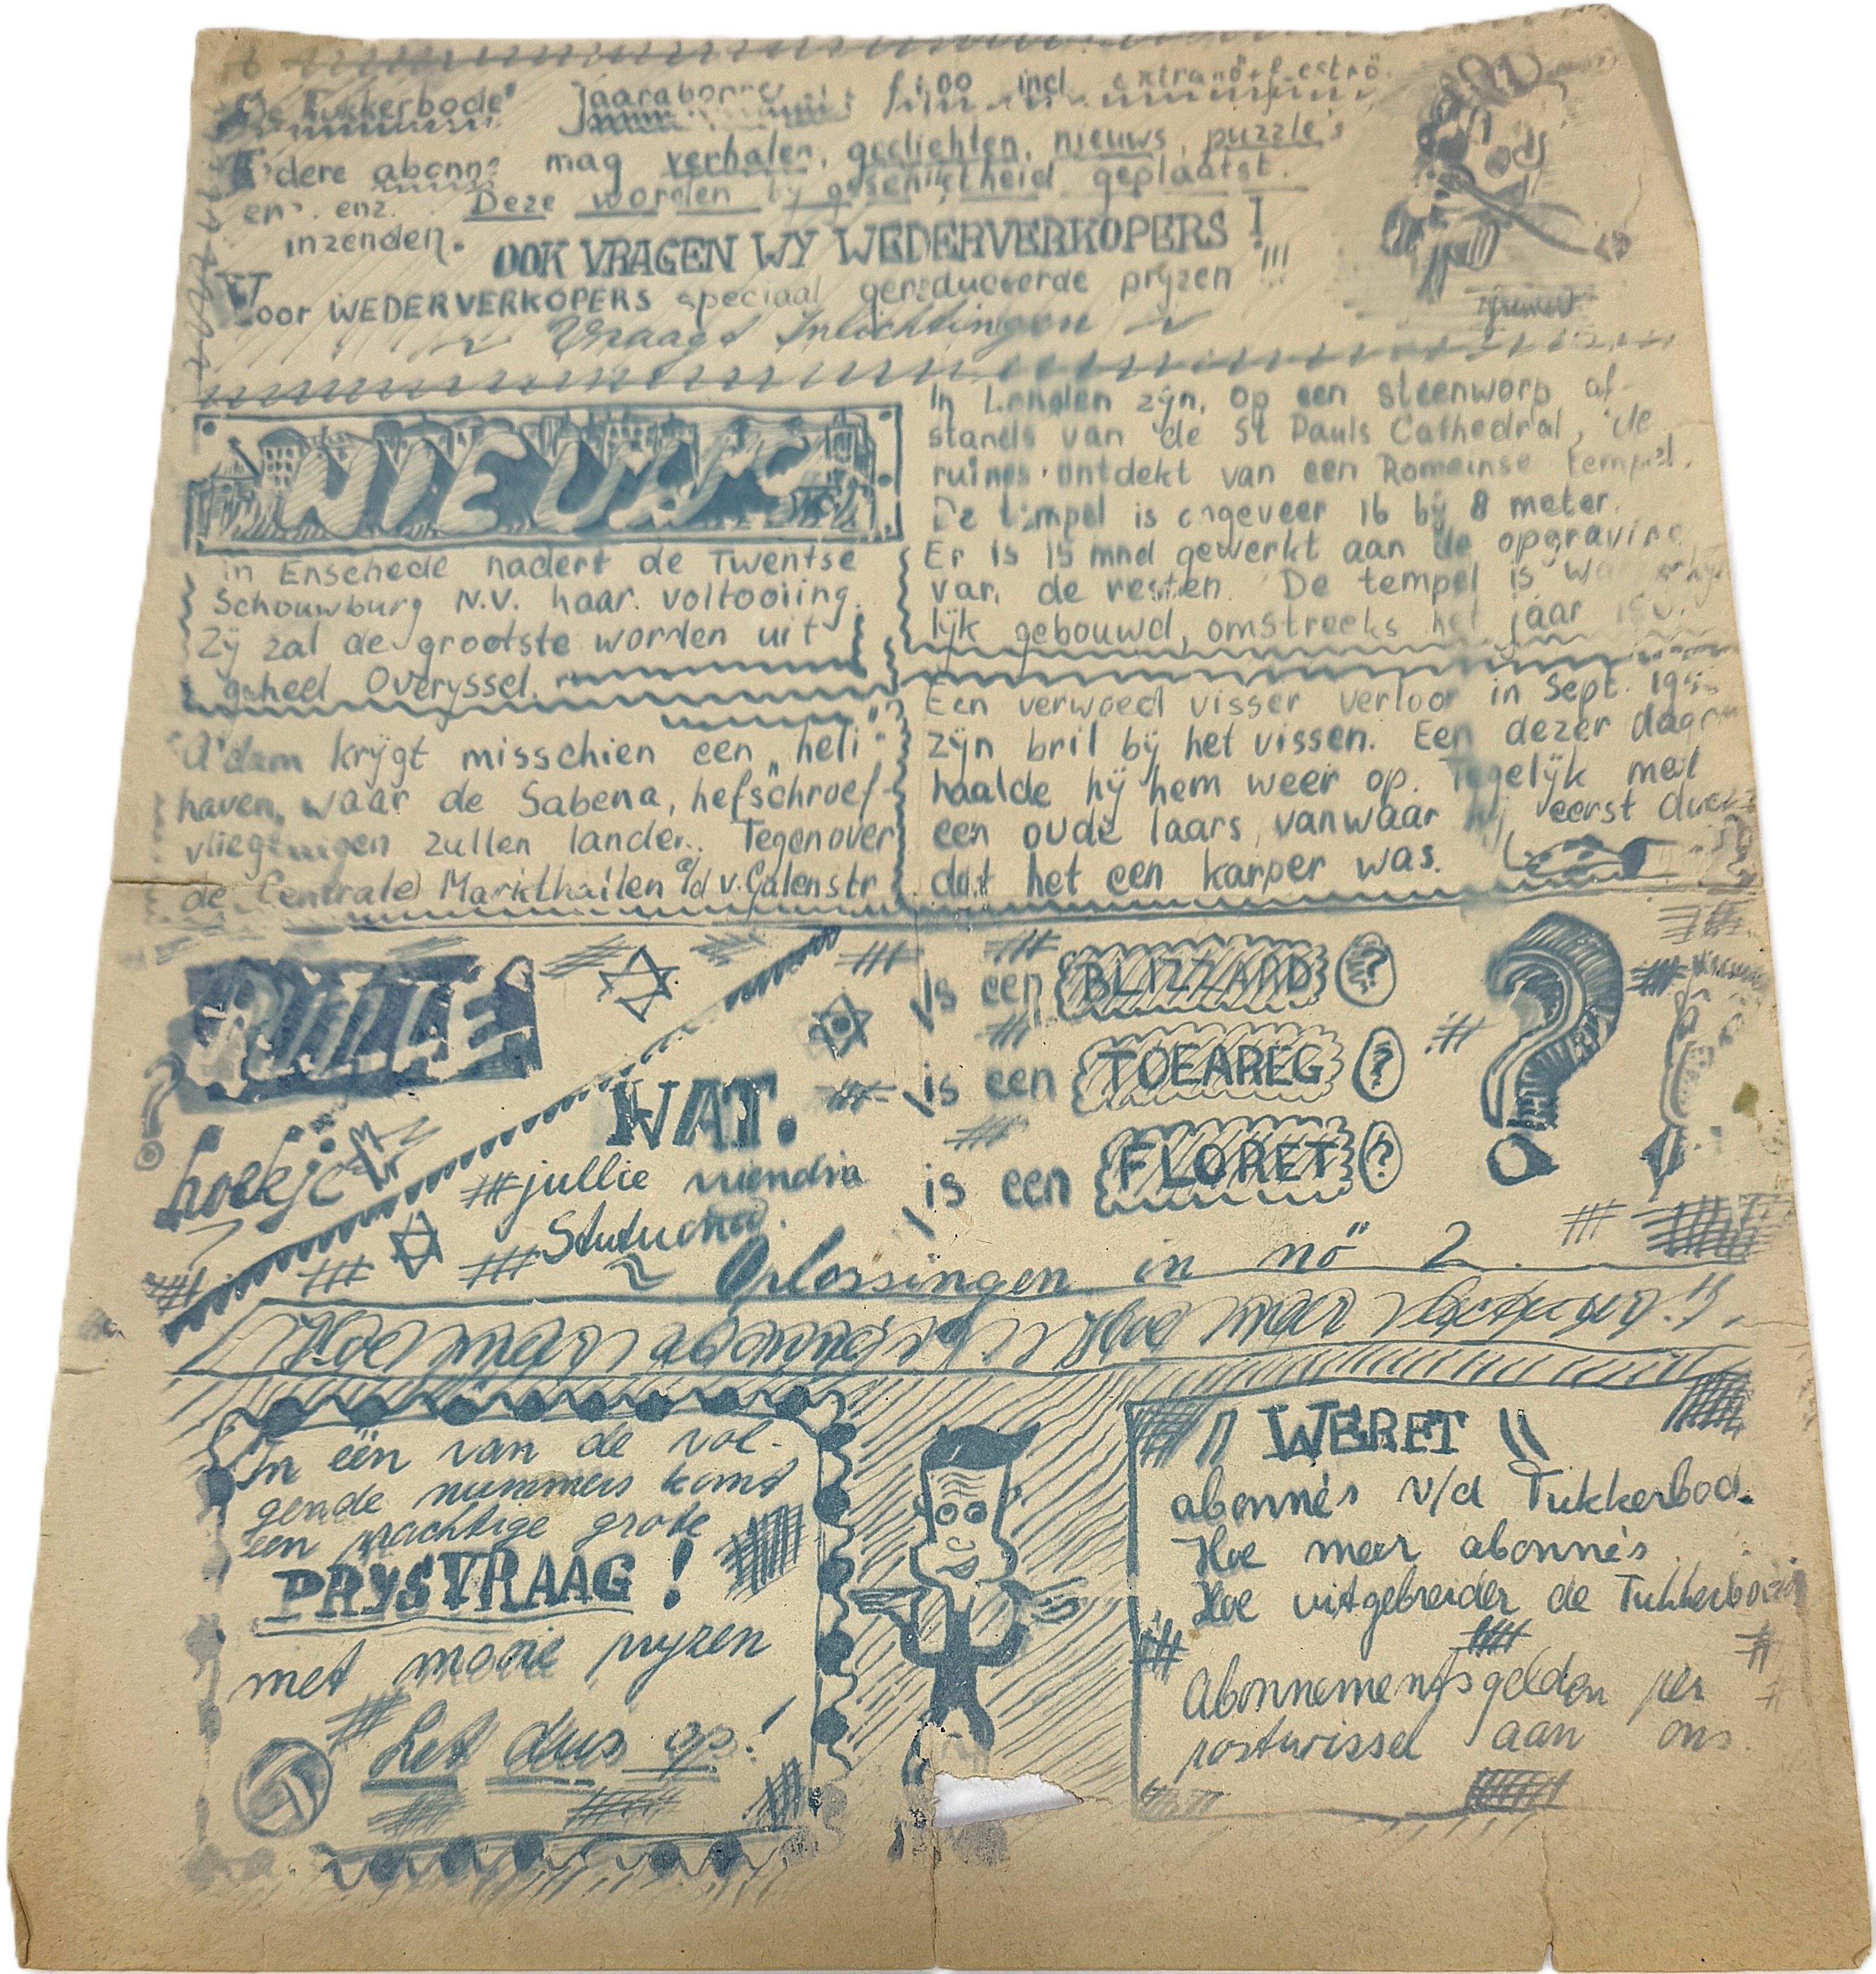 De Tukkerbode" Jaarabonne f 1,00 incl extranō+f estrō.
Iedere abonné mag verhalen, gedichten, nieuws, puzzle's
enz. enz. Deze worden by geschiktheid geplaatst.
inzenden.
OOK VRAGEN WY WEDERVERKOPERS!
Voor WEDERVERKOPERS speciaal gereduceerde prijzen !!!
Vraagt Inlichtingen
NIEUWS
In Enschede nadert de Twentse
Schouwburg N.V. haar voltooiing.
Zÿ zal de grootste worden uit
geheel Overyssel.
A'dam krÿgt misschien een „heli"
haven„ waar de Sabena, hefschroef-
vliegtuigen zullen landen. Tegenover
de Centrale Markthallen a/d v. Galenstr
In Londen zÿn, op een steenworp af-
stands van de St Pauls Cathedral, de
ruines ontdekt van een Romeinse tempel.
De tempel is ongeveer 16 bÿ 8 meter.
Er is 15 mnd gewerkt aan de opgraving
van de resten. De tempel is
lÿk gebouwd, omstreeks het jaar
Een verwoed visser verloor in Sept.
zÿn bril bÿ het vissen. Een dezer dagen
haalde hÿ hem weer op. Tegelÿk met
een oude laars, vanwaar hÿ eerst dacht
dat het een karper was.
hoekje
WAT.
jullie vriendin
is een BLIZZARD ?
is een TOEAREG ?
is een FLORET ?
?
Oplossingen in nō 2.
Hoe meer abonné's Hoe meer
In ëën van de vol-
gende nummers komt
een prachtige grote
PRYSVRAAG !
met mooie pryzen
Let dus op!
// WERFT \\
abonnés v/d Tukkerbode
Hoe meer abonnés
Hoe uitgebreider de Tukkerbode
Abonnementsgelden per
postwissel aan ons.